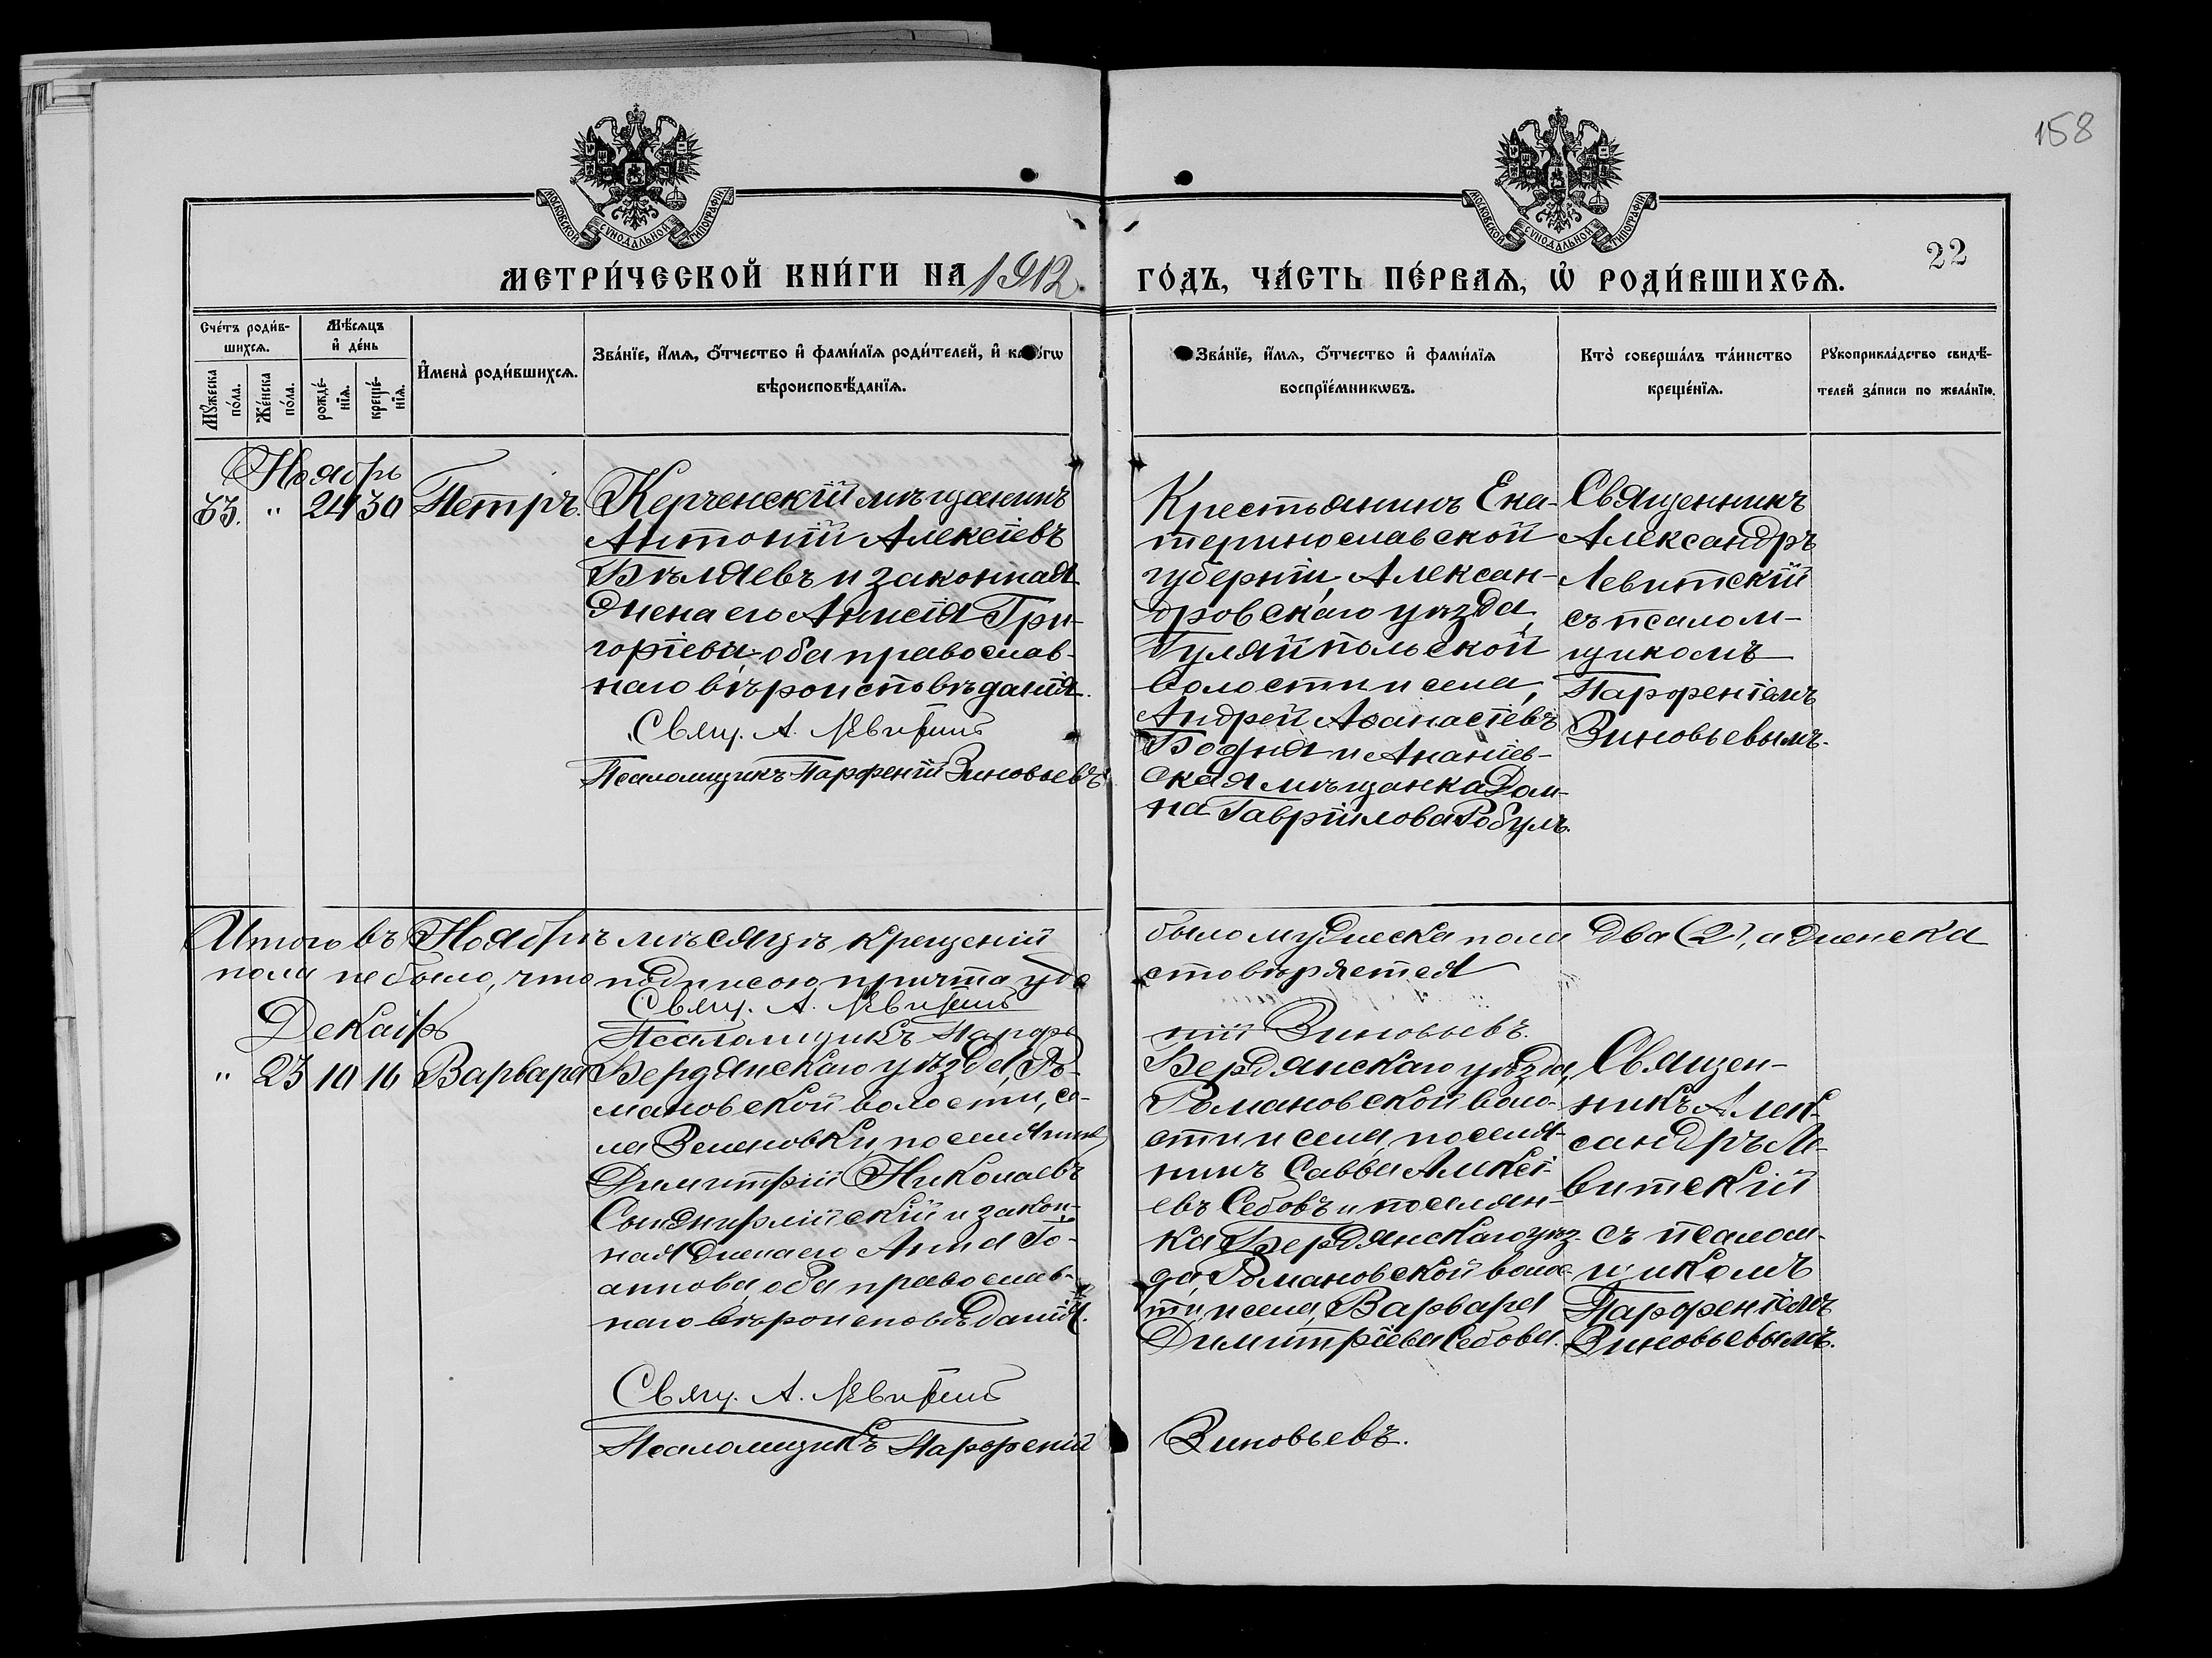 158
МОСКОВСКОЙ СѴНОДАЛЬНОЙ ТИПОГРАФІИ
МОСКОВСКОЙ СѴНОДАЛЬНОЙ ТИПОГРАФІИ
22
МЕТРИ́ЧЕСКОЙ КНИ́ГИ НА 1912.
ГО́ДЪ, ЧА́СТЬ ПЕ́РВАѦ, Ѽ РОДИ́ВШИХСѦ.
Сче́тъ роди́в-
шихсѧ.
Мѣ́сѧцъ
и҆ де́нь
Мꙋ́жеска
по́ла.
Же́нска
по́ла.
рожде́-
нїѧ.
креще́-
нїѧ.
И҆мена̀ роди́вшихсѧ.
Зва́нїе, и҆́мѧ, ѻ҆́тчество и҆ фами́лїѧ роди́телей, и҆
вѣроисповѣ́данїѧ.
Зва́нїе, и҆́мѧ, ѻ҆́тчество и҆ фами́лїѧ
воспрїе́мникѡвъ.
Кто̀ соверша́лъ та́инство
креще́нїѧ.
Рꙋкоприкла́дство свидѣ́-
телей за́писи по жела́нїю.
Ноябрь
33. " 24 30 Петръ.
Керченскій мѣщанинъ
Антоній Алексіевъ
Бѣляевъ и законная
жена его Анисія Гри-
горіева, оба православ-
наго вѣроисповѣданія.
Свящ. А. Левитскій
Псаломщикъ Парфеній Зиновьевъ
Крестьянинъ Ека-
теринославской
губерніи, Алексан-
дровскаго уѣзда,
Гуляйпольской
волости и села,
Андрей Аѳанасіевъ
Бодня и Ананіев-
ская мѣщанка Дом-
на Гавріилова Робулъ.
Священникъ
Александръ
Левитскій
съ псалом-
щикомъ
Парфеніемъ
Зиновьевымъ.
Итого въ Ноябрѣ мѣсяцѣ крещеній
было мужеска пола два (2), а женска
пола не было, что подписою причта удо
стовѣряется
Свящ. А. Левитскій
Псаломщикъ Парфе
ній Зиновьевъ.
Декабрь
" 23 10 16 Варвара
Бердянскаго уѣзда, Ро-
мановской волости, се-
ла Зеленовки, поселянинъ
Димитрій Николаевъ
и закон-
ная жена его Анна Іо-
аннова, оба православ-
наго вѣроисповѣданія.
Свящ. А. Левитскій
Псаломщикъ Парфеній
Зиновьевъ.
Бердянскаго уѣзда,
Романовской воло-
сти и села, поселя-
нинъ Савва Алексі-
евъ Себовъ и поселян-
ка Бердянскаго уѣз-
да, Романовской волос-
ти и села, Варвара
Димитріева Себова.
Священ-
никъ Алек-
сандръ Ле-
витскій
съ псалом-
щикомъ
Парфеніемъ
Зиновьевымъ.